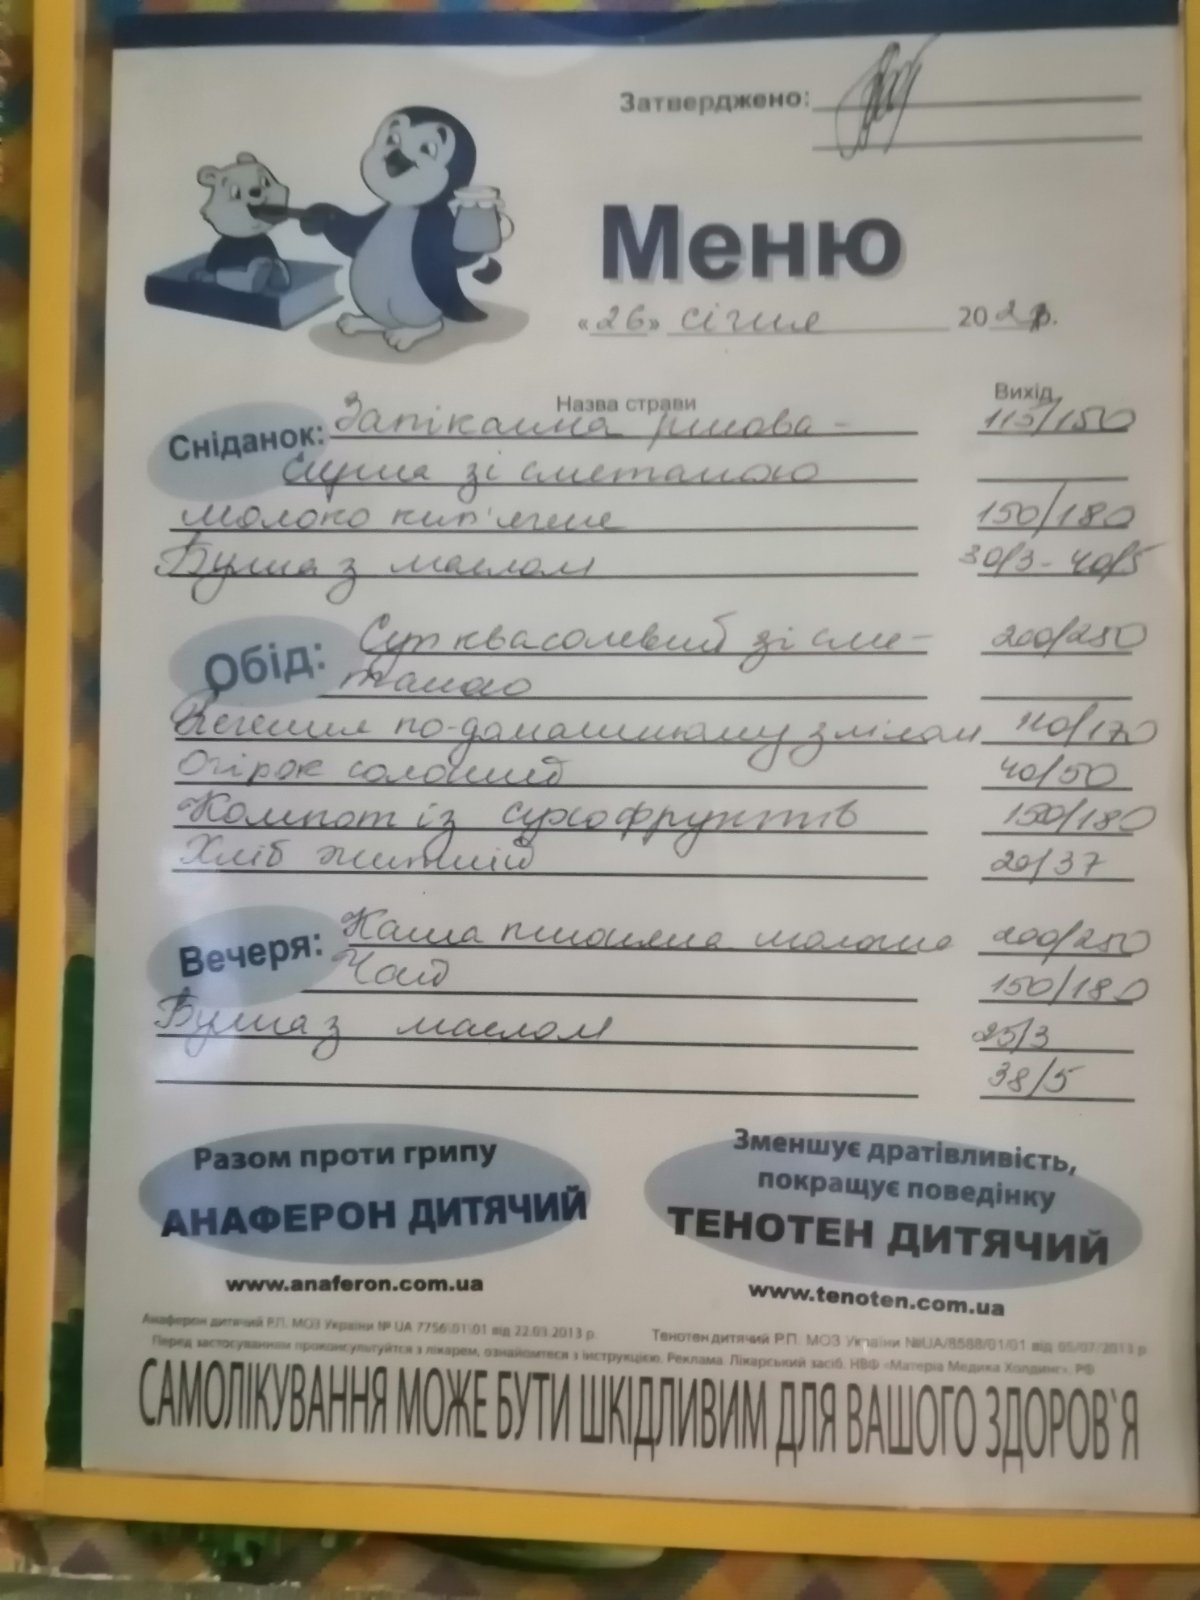 Затверджено:
Меню
«26» січня 202 р.
Назва страви Вихід
Сніданок: Запіканка рисова - 115/150
сирна зі сметаною
молоко кип'ячене 150/180
Булка з маслом 30/3-40/5
Обід: Суп квасолевий зі сме- 200/250
таною
Печеня по-домашньому з м'ясом 110/170
Огірок солоний 40/50
Компот із сухофруктів 150/180
Хліб житній 20/37
Вечеря: Каша пшоняна молочна 200/250
Чай 150/180
Булка з маслом 25/3
38/5
Разом проти грипу
АНАФЕРОН ДИТЯЧИЙ
www.anaferon.com.ua
Зменшує дратівливість,
покращує поведінку
ТЕНОТЕН ДИТЯЧИЙ
www.tenoten.com.ua
Анаферон дитячий Р.П. МОЗ України № UA 7756\01\01 від 22.03.2013 р.
Тенотен дитячий Р.П. МОЗ України №UA/8588/01/01 від 05/07/2013 р.
Перед застосуванням проконсультуйтся з лікарем, ознайомтеся з інструкцією. Реклама. Лікарський засіб. НВФ «Матеріа Медика Холдинг», РФ
САМОЛІКУВАННЯ МОЖЕ БУТИ ШКІДЛИВИМ ДЛЯ ВАШОГО ЗДОРОВ`Я